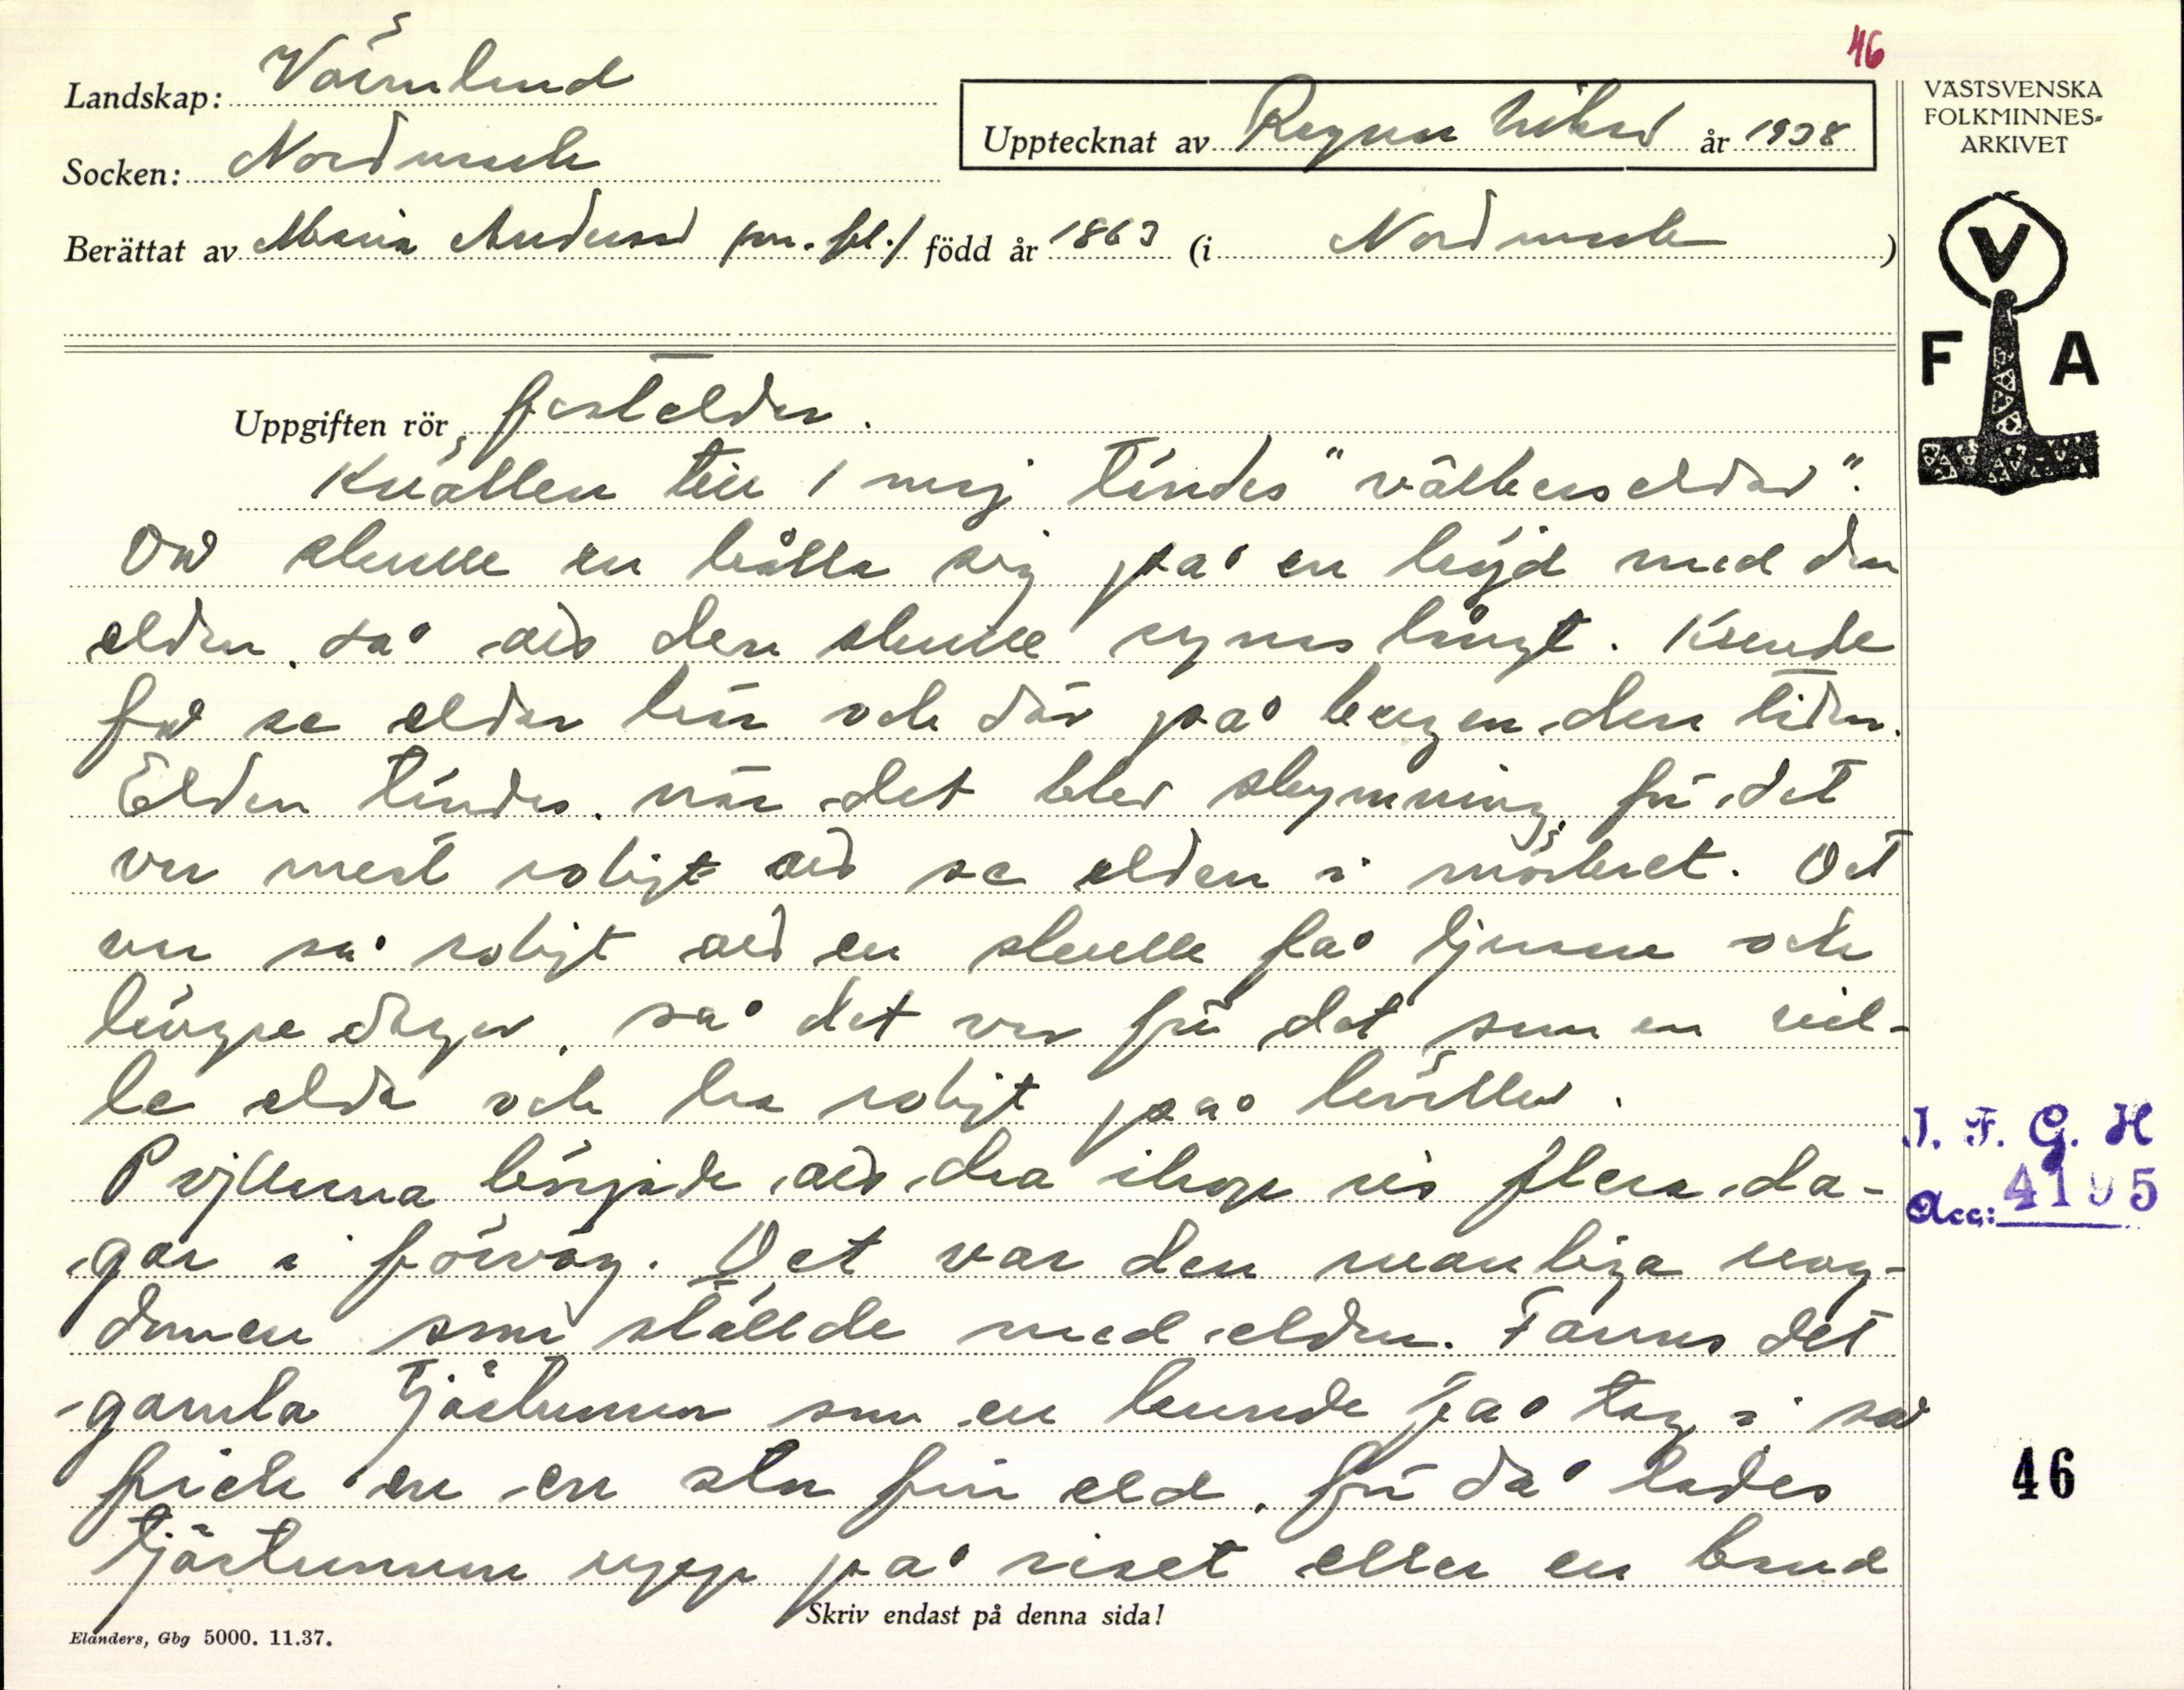 46
Landskap: Värmland
Socken: Nordmark
Upptecknat av Ragnar Nilsson år 1938
Berättat av Maria Andersson född år 1863 (i Nordmark)
VÄSTSVENSKA
FOLKMINNES-
ARKIVET
V
F A
Uppgiften rör festeldar.
Kvällen till 1 maj tändes "valborseldar".
Då skulle en hålla sig på en höjd med den
elden, så att den skulle synas långt. Kunde
få se eldar här och där på bergen den tiden.
Elden tändes när det blev skymning, för det
var mest roligt att se elden i mörkret. Det
var så roligt att en skulle få ljusare och
längre dagar, så det var för det som en vil-
le elda och ha roligt på kvällen.
Pojkarna började att dra ihop ris flera da-
gar i förväg. Det var den manliga ung-
domen som ställde med elden. Fanns det
gamla tjärtunnor som en kunde få tag i så
fick en en stor fin eld, för då lades
tjärtunnan upp på riset eller en bund
Skriv endast på denna sida!
Elanders, Gbg 5000. 11.37.
I. F. G. H
Acc: 4105
46